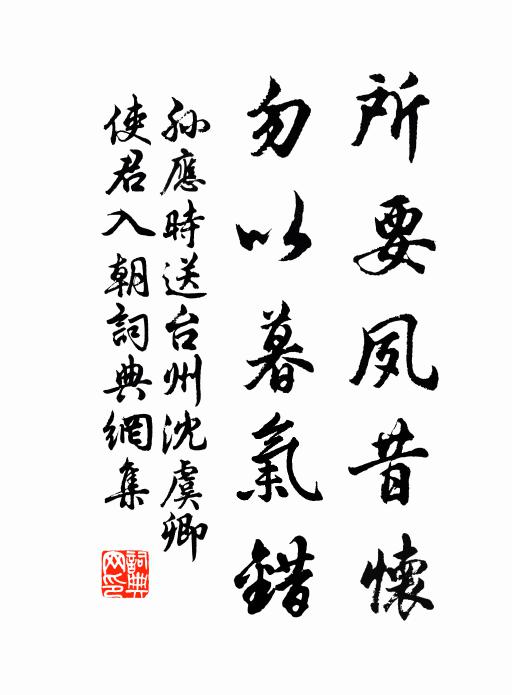 所要夙昔懷
勿以暮氣錯
孫應時送台州沈虞卿
使君入朝詞典網集
詞典
网印